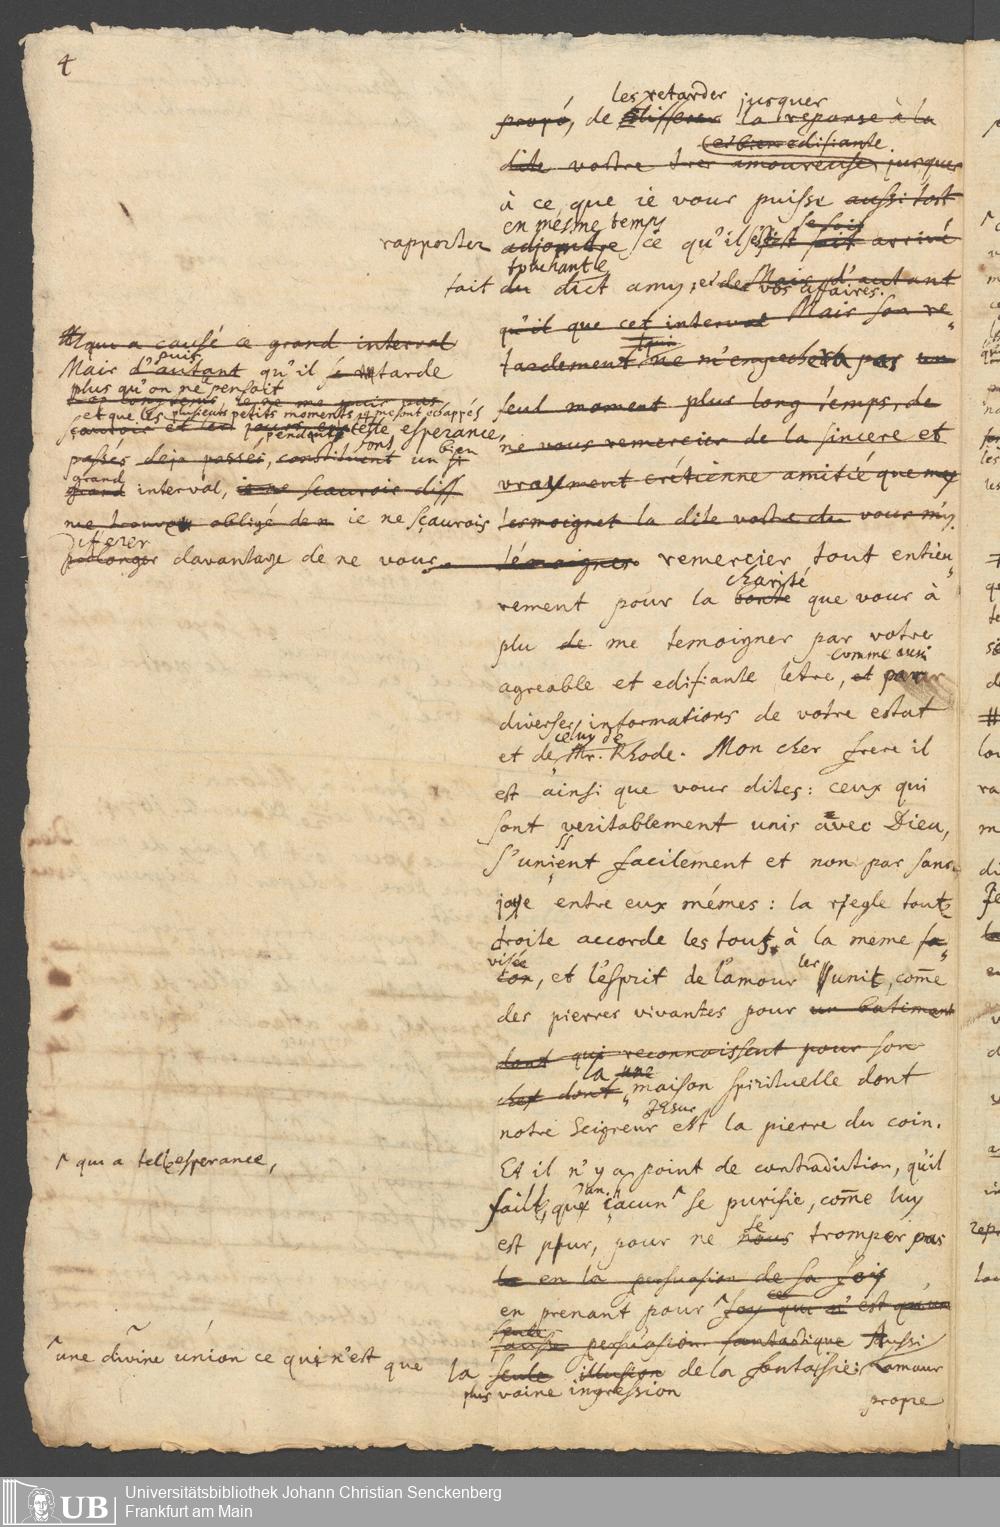 4
les retarder jusques
propó, de differer la reponse à la
et bien edifiante
dite vostre tres amoureuse, jusques
à ce que ie vous puisse aussi tost
en mesme temps se soit
rapporter adjoindre ce qu'il s'est fait arrivé
touchant le
fait du dict amy, et de vos affaires. Mais d'autant
qu'il que cet interval Mais son re„
tardement ne m'empechera pas un
seul moment plus long temps, de
ne vous remercier de la sincere et
vrayment crétienne amitié que my
tesmoignet la dite vostre du vous m'y
témoignez. remercier tout entieu„
charité
rement pour la bonté que vous à
plu de me temoigner par votre
comme aussi
agreable et edifiante letre, et par
diverses informations de votre estat
celuy de
et de Mr. Rhode. Mon cher frere il
est ainsi que vous dites: ceux qui
sont veritablement unis avec Dieu,
s'unissent facilement et non pas sans
joye entre eux mémes: la riegle toute
droite accorde les touts à la meme fa„
visée les
ton, et l'esprit de l'amour unit, come
des pierres vivantes pour un batiment
dont qui reconnoissent pour son
la une
chef dont maison spirituelle dont
Jesus
notre Seigneur est la pierre du coin.
Et il n'y a point de contradiction, qu'il
faille, que chacun se purifie, come luy
se
est pur, pour ne nous tromper pas
la en la persuasion de sa foy
en prenant pour foy qui n'est qu'une
seule
fausse persuasion fantastique Aussi
la seule illusion de la fantaisie: L'amour
plus vaine ingression
propre
qui a causé ce grand interval
puis
Mais d'autant qu'il tarde
plus qu'on ne pensoit
et que les plusieurs petits moments qui me sont echappés
pendant cette esperance,
sont bien
passés deja passés, constituent un
grand
grand interval, ie ne scaurois diff
me trouve obligé de n ie ne sçaurois
diferer
prolonger davantage de ne vous
qui a telle esperance,
une divine unïon ce qui n'est que
Universitätsbibliothek Johann Christian Senckenberg
Frankfurt am Main
UB